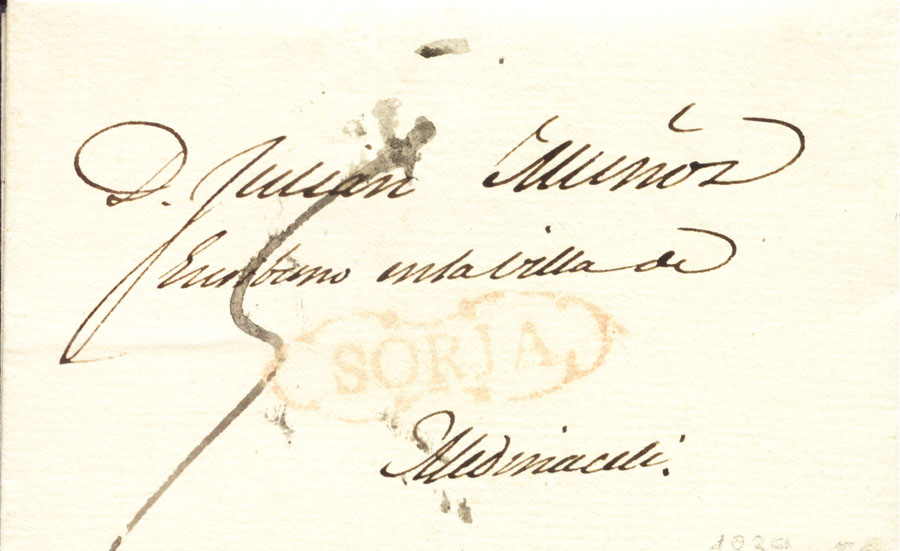 D. Julian Muñoz
Escribano en la Villa de
SORIA
Medinaceli.